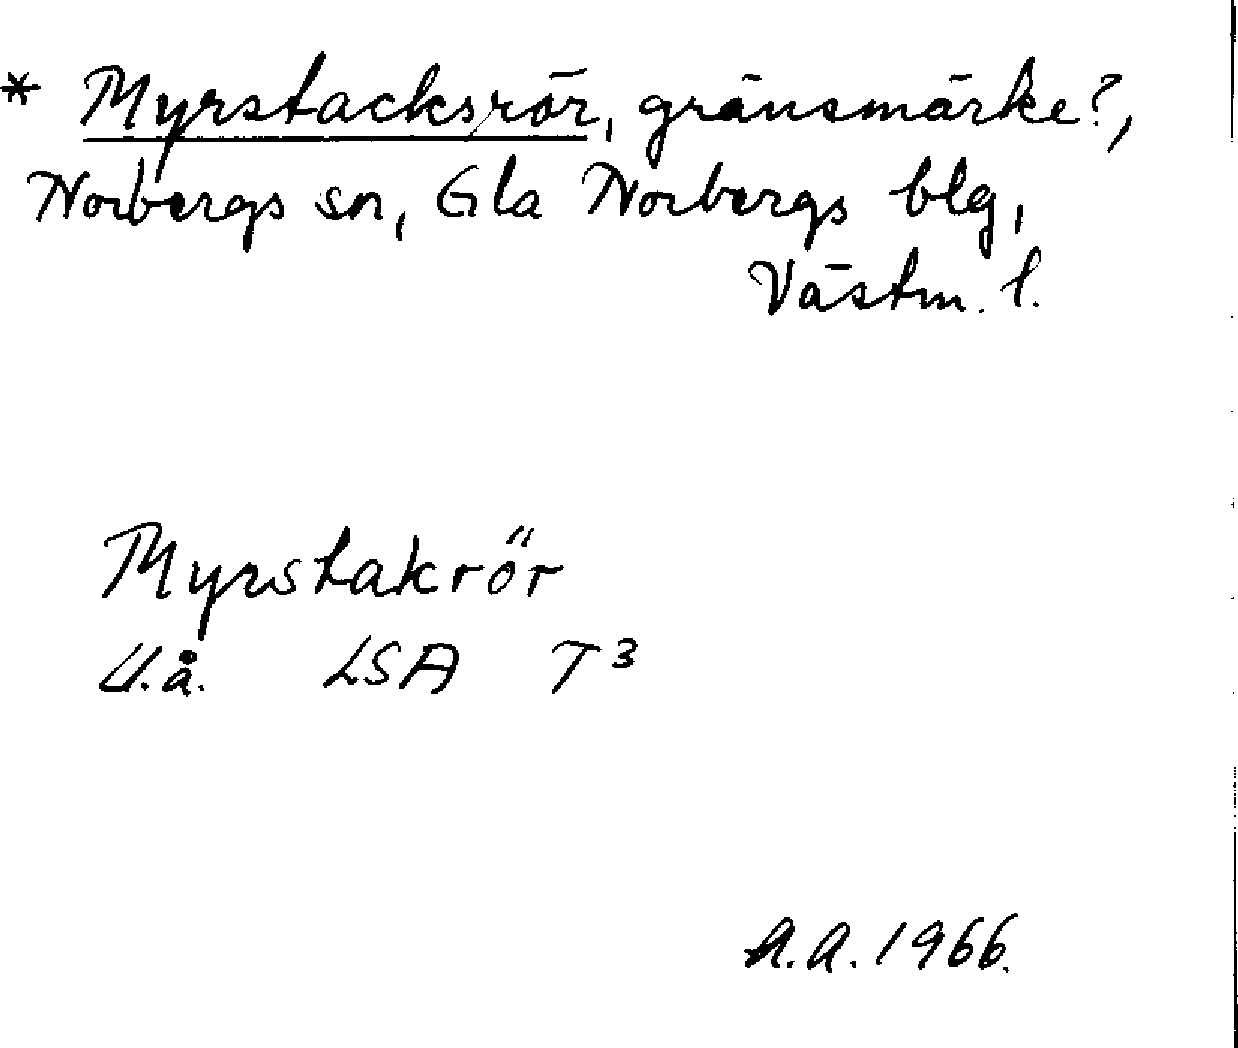 * Myrstacksrör, gränsmärke?,
Norbergs sn, Gla Norbergs blg,
Västm. l.
Myrstakrör
U.å. LSA T3
A.A. 1966.